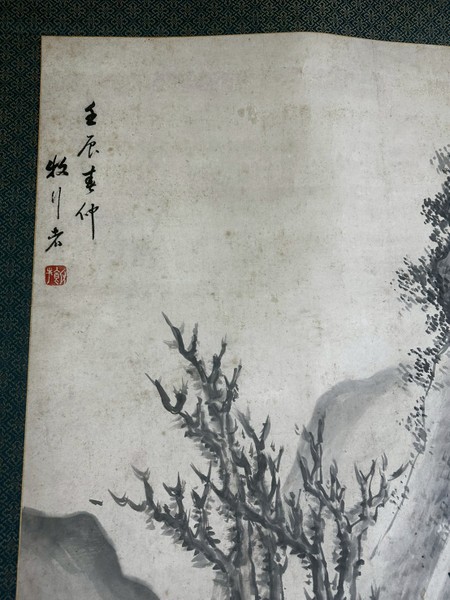 壬辰春仲
牧川老